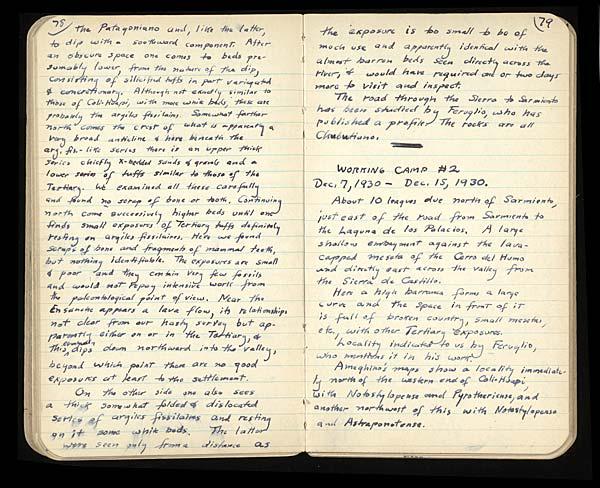 78
The Patagoniano and, like the latter,
to dip with a southward component. After
an obscure space one comes to beds pre-
sumably lower, from the nature of the dip,
consisting of silicified tuffs in part variegated
& concretionary. Although not exactly similar to
those of Coli-Hapi, with more white beds, these are
probably the argiles fissilaires. Somewhat farther
north comes the crest of what is apparently a
very broad anticline & here beneath the
arg. fis.-like series there is an upper thick
series chiefly x-bedded sands & gravels and a
lower series of tuffs similar to those of the
Tertiary. We examined all these carefully
and found no scrap of bone or tooth. Continuing
north come successively higher beds until one
finds small exposures of Tertiary tuffs definitely
resting on argiles fissilaires. Here we found
scraps of bone and fragments of mammal teeth,
but nothing identifiable. The exposures are small
& poor and they contain very few fossils
and would not repay intensive work from
the paleontological point of view. Near the
Ensanche appears a lava flow, its relationships
not clear from our hasty survey but ap-
parently either on or in the Tertiary, &
this dips down northward into the valley,
beyond which point there are no good
exposures at least to the settlement.
On the other side one also sees
a thick somewhat folded & dislocated
series of argiles fissilaires and resting
on it some white beds. The latter
were seen only from a distance as
79
the exposure is too small to be of
much use and apparently identical with the
almost barren beds seen directly across the
river, & would have required one or two days
more to visit and inspect.
The road through the Sierra to Sarmiento
has been studied by Feruglio, who has
published a profile. The rocks are all
Chubutiano.
WORKING CAMP #2
Dec. 7, 1930 – Dec. 15, 1930.
About 10 leagues due north of Sarmiento,
just east of the road from Sarmiento to
the Laguna de los Palacios. A large
shallow embayment against the lava-
capped meseta of the Cerro del Humo
and directly east across the valley from
the Sierra de Castillo.
Here a high barranca forms a large
curve and the space in front of it
is full of broken country, small mesetas,
etc., with other Tertiary exposures.
Locality indicated to us by Feruglio,
who mentions it in his work.
Ameghino's maps show a locality immediate-
ly north of the western end of Coli-Hapi,
with Notostylopense and Pyrotheriense, and
another northwest of this with Notostylopense
and Astraponotense.